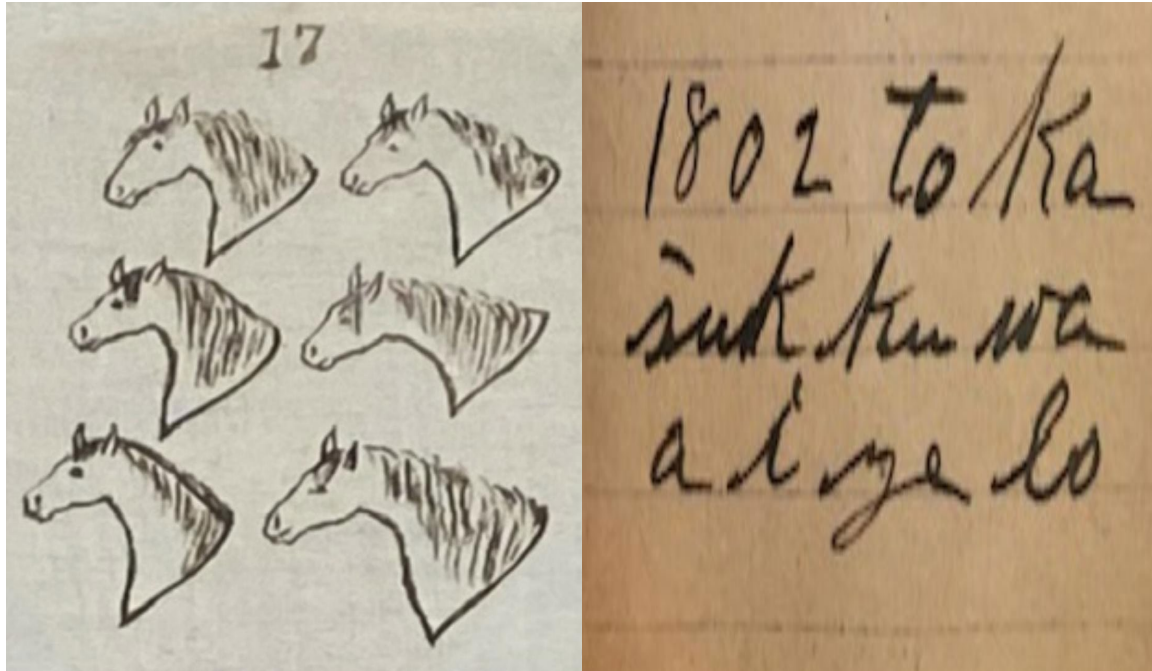 17
1802 to ka
šuk ku wa
a i ye lo